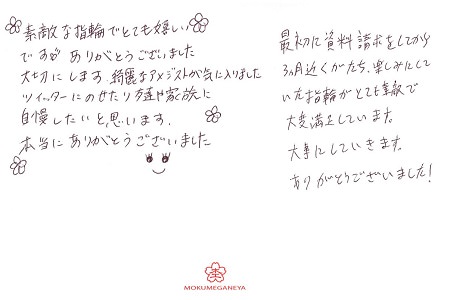 素敵な指輪でとても嬉しい
です ありがとうございました
大切にします。綺麗なアメジストが気に入りました
ツイッターにのせたり友達や家族に
自慢したいと思います。
本当にありがとうございました
最初に資料請求をしてから
3ヵ月近くがたち、楽しみにして
いた指輪がとても素敵で
大変満足しています。
大事にしていきます。
ありがとうございました!
MOKUMEGANEYA